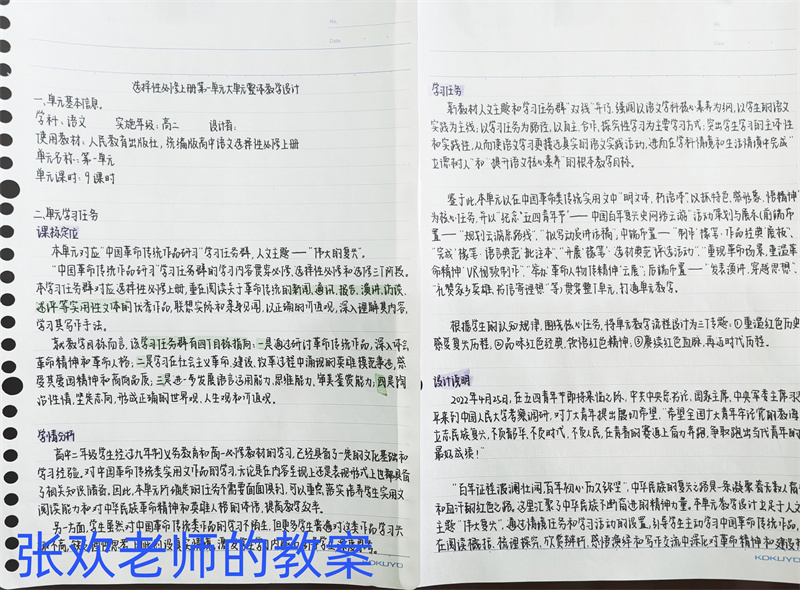 选择性必修上册第一单元大单元整体教学设计
一、单元基本信息。
学科：语文 实施年级：高二 设计者：
使用教材：人民教育出版社，统编版高中语文选择性必修上册
单元名称：第一单元
单元课时：9课时
二、单元学习任务
课标定位
本单元对应“中国革命传统作品研习”学习任务群，人文主题——“伟大的复兴”。
“中国革命传统作品研习”学习任务群的学习内容贯穿必修、选择性必修和选修三个阶段。
本学习任务群对应选择性必修上册，重在阅读关于革命传统的新闻、通讯、报告、演讲、访谈、
述评等实用性文体的优秀作品，联想实际和亲身见闻，以正确的价值观，深入理解其内容，
学习其写作手法。
就教学目标而言，该学习任务群有四个目标指向：一是通过研讨革命传统作品，深入体会
革命精神和革命人格；二是学习在社会主义革命、建设、改革过程中涌现的英雄模范事迹，感
受其爱国精神和高尚品质；三是进一步发展语言运用能力、思维能力、审美鉴赏能力；四是陶
冶性情，坚定志向，形成正确的世界观、人生观和价值观。
学情分析
高中二年级学生经过九年制义务教育和高一必修教材的学习，已经具备了一定的文化基础和
学习经验。对中国革命传统类实用文作品的学习，无论是在内容主观上还是表现形式上也都具备
了相关知识储备。因此，本单元所涉及的任务不需要面面俱到，可以重点落实培养学生实用文
阅读能力和对中华民族革命精神和英雄人格的体悟，提高教学效率。
另一方面，学生虽然对中国革命传统类作品的学习不陌生，但更多学生普遍对这类作品学习兴
张欢老师的教案
学习任务
新教材人文主题和学习任务群“双线”并行，强调以语文学科核心素养为纲，以学生的语文
实践为主线，以学习任务为路径，以自主、合作、探究性学习为主要学习方式，突出学生学习的主体性
和实践性，从而使语文学习更接近真实的语文实践活动，进而在学科情境和生活情境中完成“
立德树人”和“提升语文核心素养”的根本教学目标。
鉴于此，本单元以在中国革命类传统实用文中“明文体，析语体，以抓特色，感形象，悟精神”
为核心任务，并以“纪念‘五四青年节’——中国百年复兴史网络云端”活动策划与展示（前端布
置——“规划云端参路线”，“拟写动员讲话稿”，中端布置——“制作‘接笔’作品经典‘展板’、
“完成‘接笔’语言典范‘批注本’、“开展‘接笔’选材典范‘评选活动’”、“重现革命场景，重温革
命精神”VR视频制作”、“举办‘革命人物’精神云展”；后端布置——“发表演讲，穿越思想”、
“礼赞家乡英雄，书信寄理想”等）贯穿整个单元，打通单元教学。
根据学生的认知规律，围绕核心任务，将单元教学流程设计为三个专题：①重温红色历史
感受复兴历程；②品味红色经典，体悟红色精神；③赓续红色血脉，再话时代历程。
设计说明
2022年4月25日，在五四青年节即将来临之际，中共中央总书记、国家主席、中央军委主席习近
平来到中国人民大学考察调研，对广大青年提出殷切希望，“希望全国广大青年牢记党的教诲
立志民族复兴，不负韶华，不负时代，不负人民，在青春的赛道上奋力奔跑，争取跑出当代青年的
最好成绩！”
“百年征程波澜壮阔，百年初心历久弥坚”，中华民族的复兴之路是一条凝聚着无数人奋斗
和血汗的红色之路，这里汇聚了中华民族不断奋进的精神力量。本单元教学设计立足于人文
主题“伟大复兴”，通过情境任务和学习活动的设置，引导学生主动学习中国革命传统作品，
在阅读概括、梳理探究、欣赏辨析、感悟演绎和写作交流中深化对革命精神和建设
KOKUYO
KOKUYO